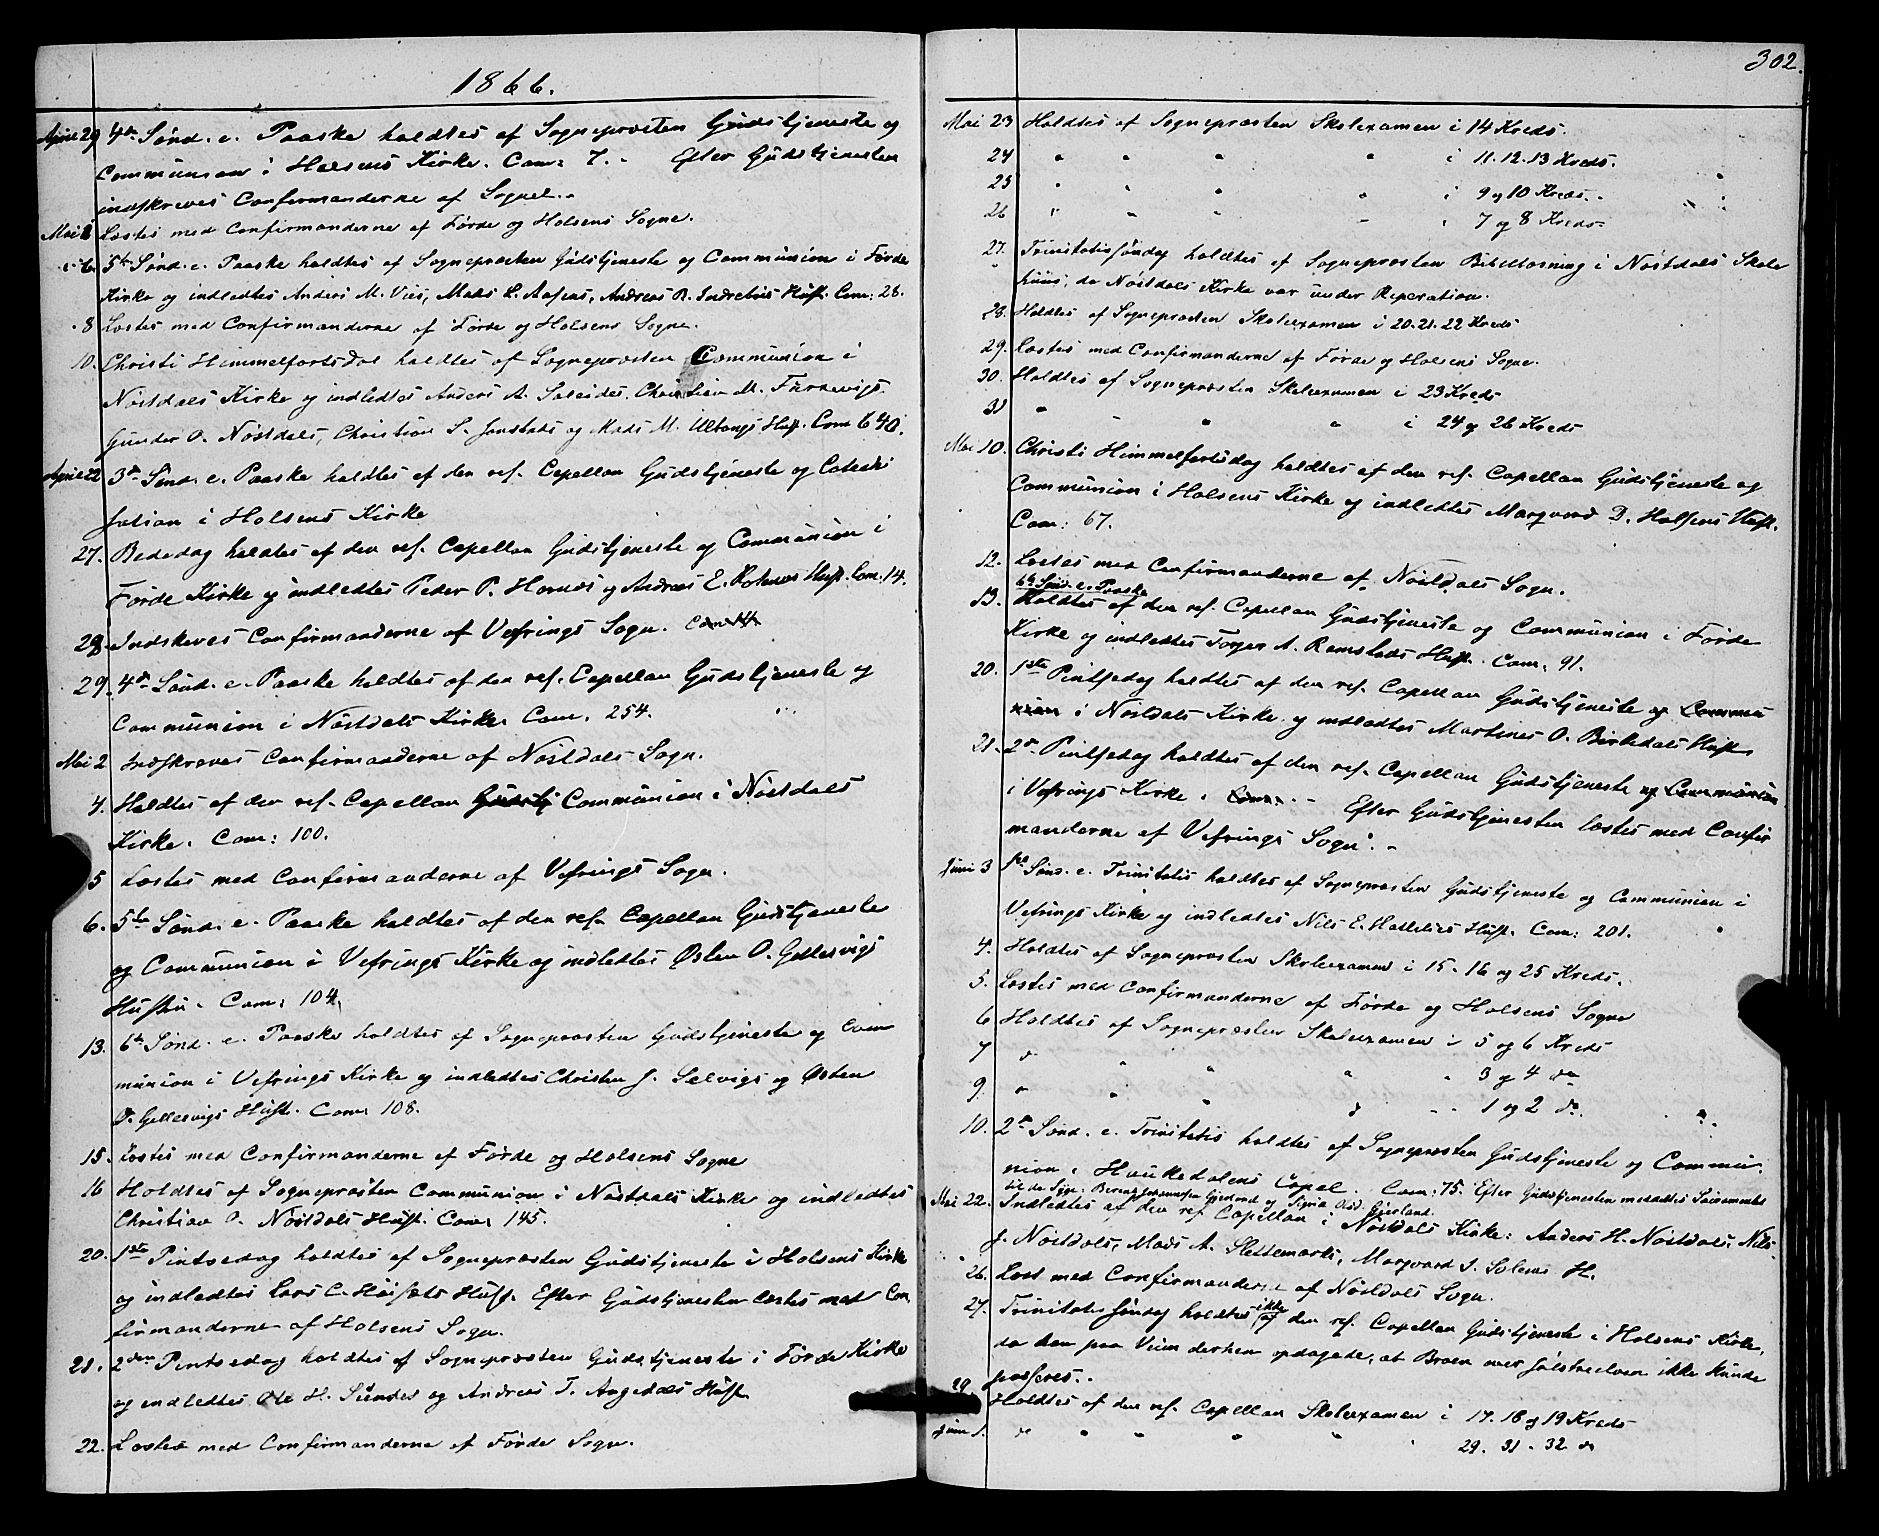 1866.
April 29 4de Sønd. e. Paaske holdtes af Sognepræsten Gudstjeneste og
Communion i Holsens Kirke. Com: 7. - Efter Gudstjenesten
indskreves Confirmanderne af Sognet. -
Mai 1 Læstes med Confirmanderne af Førde og Holsens Sogne.
" 6. 5te Sønd. e. Paaske holdtes af Sognepræsten Gudstjeneste og Communion i Førde
Kirke og indledtes Anders M. Vies, Mads L. Aasens, Andreas R. Indrebøs Hust. Com: 28.
" 8 Læstes med Confirmanderne af Førde og Holsens Sogne.
10. Christi Himmelfartsdag holdtes af Sognepræsten Communion i
Nøstdals Kirke og indledtes Anders A. Soleides, Christian M. Furnevigs
Gunder O. Nøstdals, Christian S. Jonstads og Mads M. Ullongs Hust. Com 640.
April 22 3die Sønd. e. Paaske holdtes af den res. Capellan Gudstjeneste og Catechi
sation i Holsens Kirke
27. Bededag holdtes af den res. Capellan Gudstjeneste og Communion i
Førde Kirke og indledtes Peder P. Hornes og Andreas E. Hust. Com. 14.
28. Indskreves Confirmanderne af Vefrings Sogn. Com 14
29. 4de Sønd. e. Paaske holdtes af den res. Capellan Gudstjeneste og
Communion i Nøstdals Kirke Com. 254.
Mai 2 Indskreves Confirmanderne af Nøstdals Sogn.
4. Holdtes af den res. Capellan Gudstj Communion i Nøstdals
Kirke. Com: 100.
5 Læstes med Confirmanderne af Vefrings Sogn.
6. 5te Sønd. e. Paaske holdtes af den res. Capellan Gudstjeneste
og Communion i Vefrings Kirke og indledtes Østen O. Gjellesvigs
Hustru. Com: 104.
13. 6te Sønd. e. Paaske holdtes af Sognepræsten Gudstjeneste og Com
munion i Vefrings Kirke og indledtes Christen J. Selvigs og Østen
O. Gjellesvigs Hust. Com: 108.
15. Læstes med Confirmanderne af Førde og Holsens Sogne
16 Holdtes af Sognepræsten Communion i Nøstdals Kirke og indledtes
Christian O. Nøstdals Hust. Com: 145.
20. 1ste Pintsedag holdtes af Sognepræsten Gudstjeneste i Holsens Kirke
og indledtes Lars C. Hust. Efter Gudstjenesten læstes med Con
firmanderne af Holsens Sogn.
21. 2den Pintsedag holdtes af Sognepræsten Gudstjeneste i Førde Kirke
og indledtes Ole H. Sundes og Andreas T. Angedals Hust.
22. Læstes med Confirmanderne af Førde Sogn.
302.
Mai 23 Holdtes af Sognepræsten Skoleexamen i 14 Kreds.
24 " " " " i 11. 12. 13 Kreds.
25 " " " " i 9 og 10 Kreds.
26 " " " " " 7 og 8 Kreds
27. Trinitatissøndag holdtes af Sognepræsten Bibellæsning i Nøstdals Skole
huus, da Nøstdals Kirke var under Reparation.
28. Holdtes af Sognepræsten Skoleexamen i 20. 21. 22 Kreds
29. Læstes med Confirmanderne af Førde og Holsens Sogne.
30. Holdtes af Sognepræsten Skoleexamen i 23 Kreds
31 " " " " i 24 og 26 Kreds
Mai 10. Christi Himmelfartsdag holdtes af den res. Capellan Gudstjeneste og
Communion i Holsens Kirke og indledtes Marqvard D. Holsens Hust.
Com: 67.
12. Læstes med Confirmanderne af Nøstdals Sogn.
6te Sønd. e. Paaske
13. Holdtes af den res. Capellan Gudstjeneste og Communion i Førde
Kirke og indledtes Torger A. Ramstads Hust. Com. 91.
20. 1ste Pintsedag holdtes af den res. Capellan Gudstjeneste og Commu
nion i Nøstdals Kirke og indledtes Martinus O. Birkedals Hust.
21. 2den Pintsedag holdtes af den res. Capellan Gudstjeneste og Communion
i Vefrings Kirke. Com: - Efter Gudstjenesten læstes med Confir
manderne af Vefrings Sogn. -
Juni 3 1ste Sønd. e. Trinitatis holdtes af Sognepræsten Gudstjeneste og Communion i
Vefrings Kirke og indledtes Nils E. Hust. Com: 201.
4. Holdtes af Sognepræsten Skoleexamen i 15. 16 og 25 Kreds.
5. Læstes med Confirmanderne af Førde og Holsens Sogne
6 Holdtes af Sognepræsten Skoleexamen i 5 og 6 Kreds
7 " " " " " 3 og 4 do
9. " " " " " 1 og 2 do.
10. 2den Sønd. e. Trinitatis holdtes af Sognepræsten Gudstjeneste og Commu
nion i Haukedalens Capel. Com: 75. Efter Gudstjenesten meddeltes Sacramentet
til de Syge:
Mai 22. Indledtes af den res. Capellan i Nøstdals Kirke: Anders H. Nøstdals, Nils
J. Nøstdals, Mads A. Slettemarks, Marqvard S. Solems H.
26. Læst med Confirmanderne af Nøstdals Sogn.
27. Trinitatissøndag holdtes ikke af den res. Capellan Gudstjeneste i Holsens Kirke,
da han paa Veien derhen opdagede, at Broen over Jølstraelven ikke kunde
passeres. -
29. Holdtes af den res. Capellan Skoleexamen i 17. 18 og 19 Kreds
Juni 1. do " " " " " 29. 31. 32 do